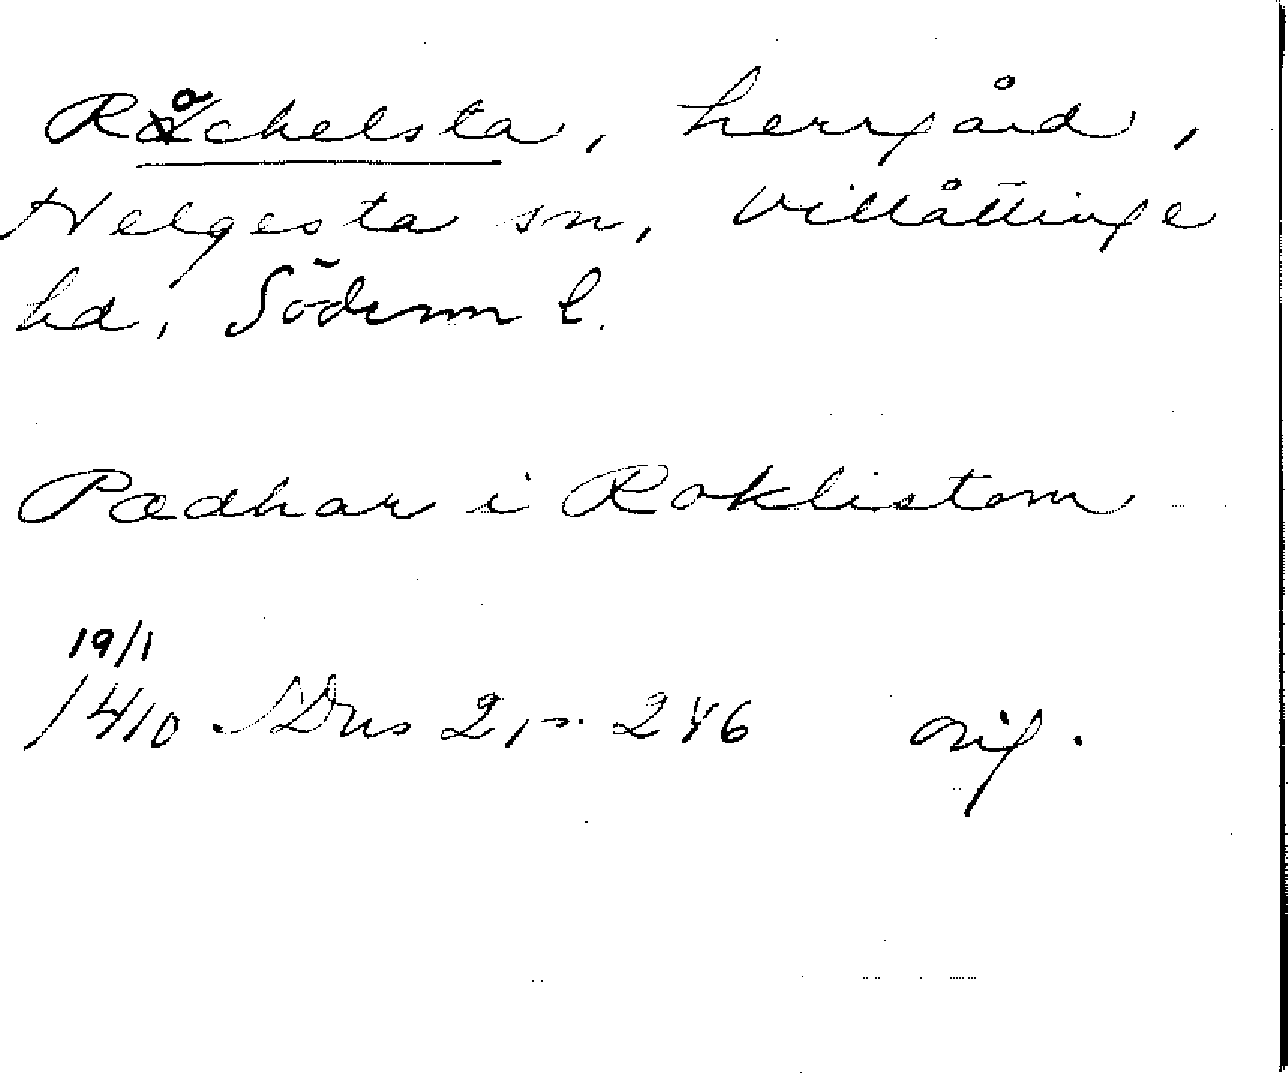 Råckelsta, herrgård,
Helgesta sn, Villåttinge
hd, Söderm l.
Pædhar i Roklistom
19/1
1410 SDns 2, s. 246 orig.